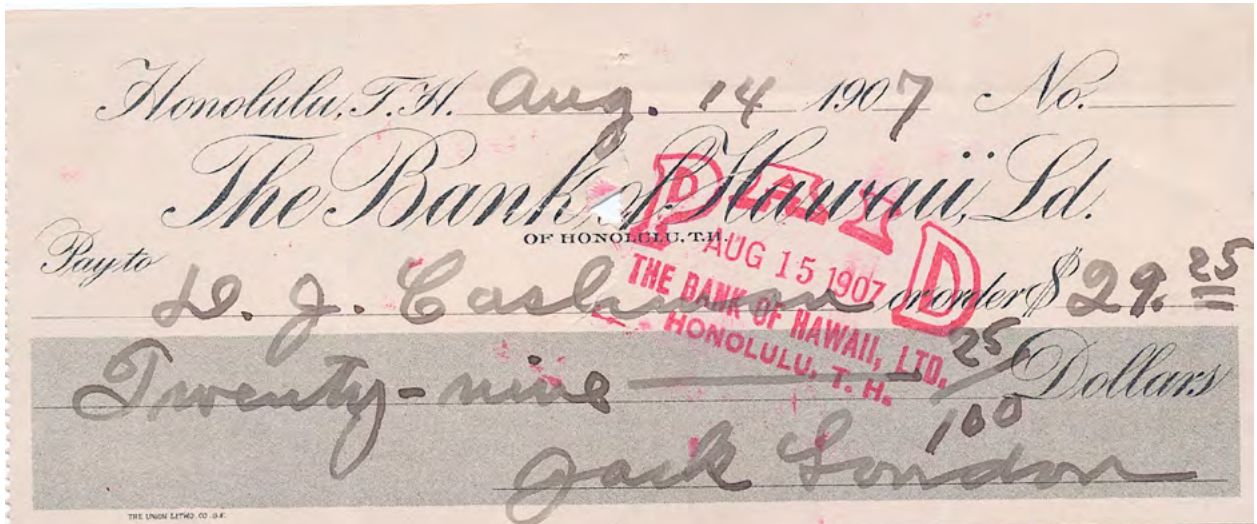 Honolulu, T.H. Aug. 14 1907 No.
The Bank of Hawaii, Ld.
OF HONOLULU, T.H.
PAID
AUG 15 1907
THE BANK OF HAWAII, LTD.
HONOLULU, T. H.
Pay to
J. Cashman or order $ 29. 25
Twenty-nine 25/100 Dollars
Jack London
THE UNION LITHO. CO. S.F.